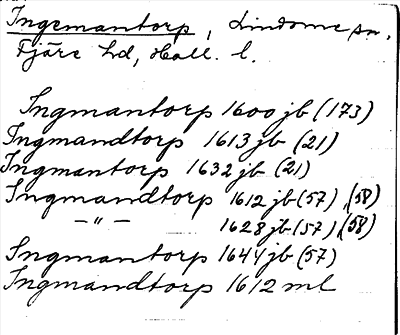 Ingemantorp, Lindome sn.
Fjäre hd, Hall. l.
Ingmantorp 1600 jb (173)
Ingmandtorp 1613 jb (21)
Ingmantorp 1632 jb (21)
Ingmandtorp 1612 jb (57), (58)
— " — 1628 jb (57), (58)
Ingmantorp 1644 jb (57)
Ingmandtorp 1612 ml